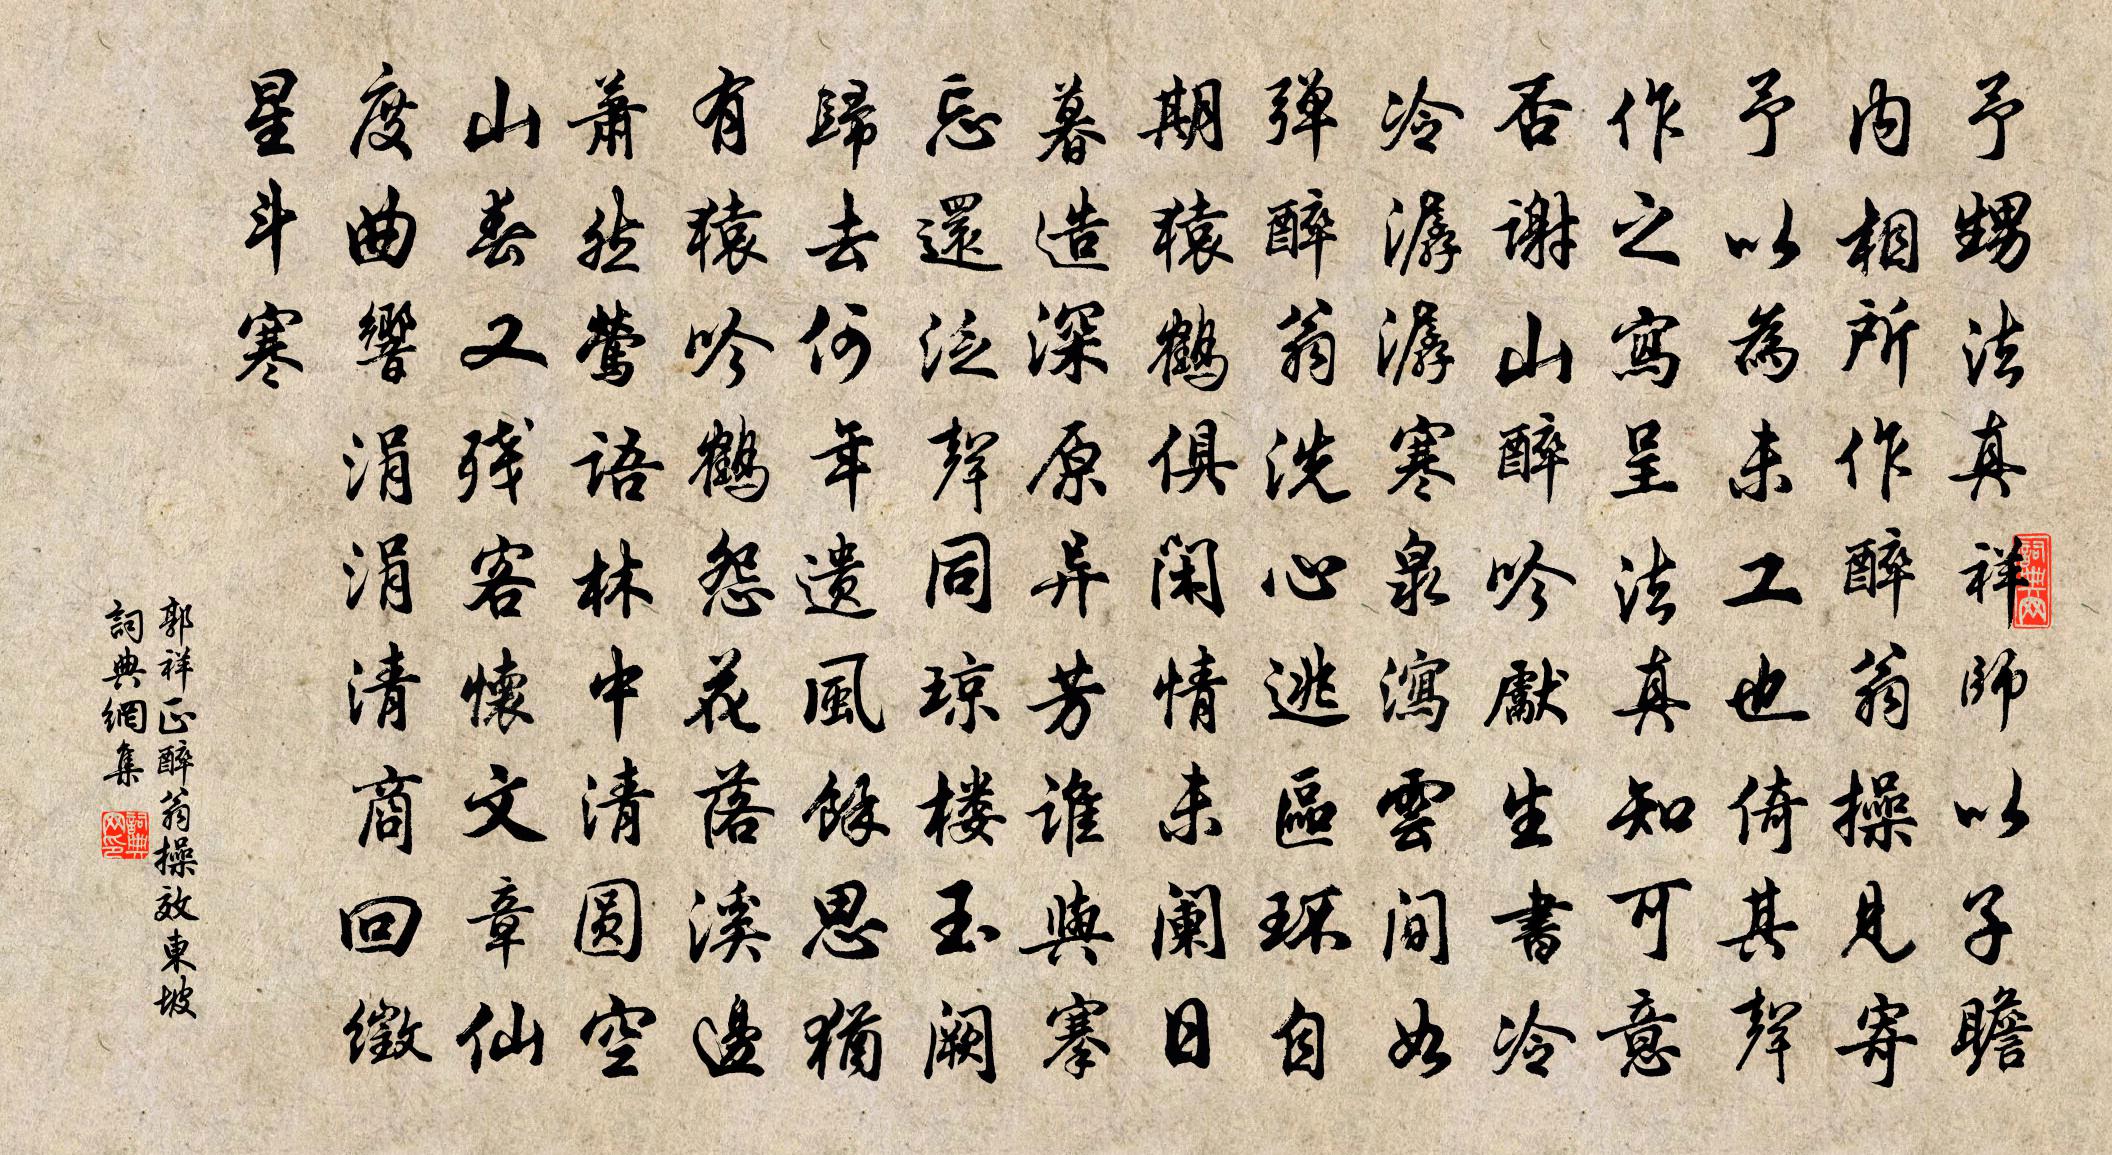 予甥法真祥師以子瞻
内相所作醉翁操見寄
予以為未工也倚其聲
作之寫呈法真知可意
否謝山醉吟獻生書冷
冷潺潺寒泉瀉雲間如
弹醉翁洗心逃區环自
期猿鶴俱闲情未阑日
暮造深原异芳誰與搴
忘還泛聲同琼楼玉阙
歸去何年遗風餘思猶
有猿吟鶴怨花落溪邊
萧然鶯語林中清圆空
山春又残客懷文章仙
度曲響涓涓清商回徵
星斗寒
郭祥正醉翁操效東坡
詞典網集
詞典网
詞典网印